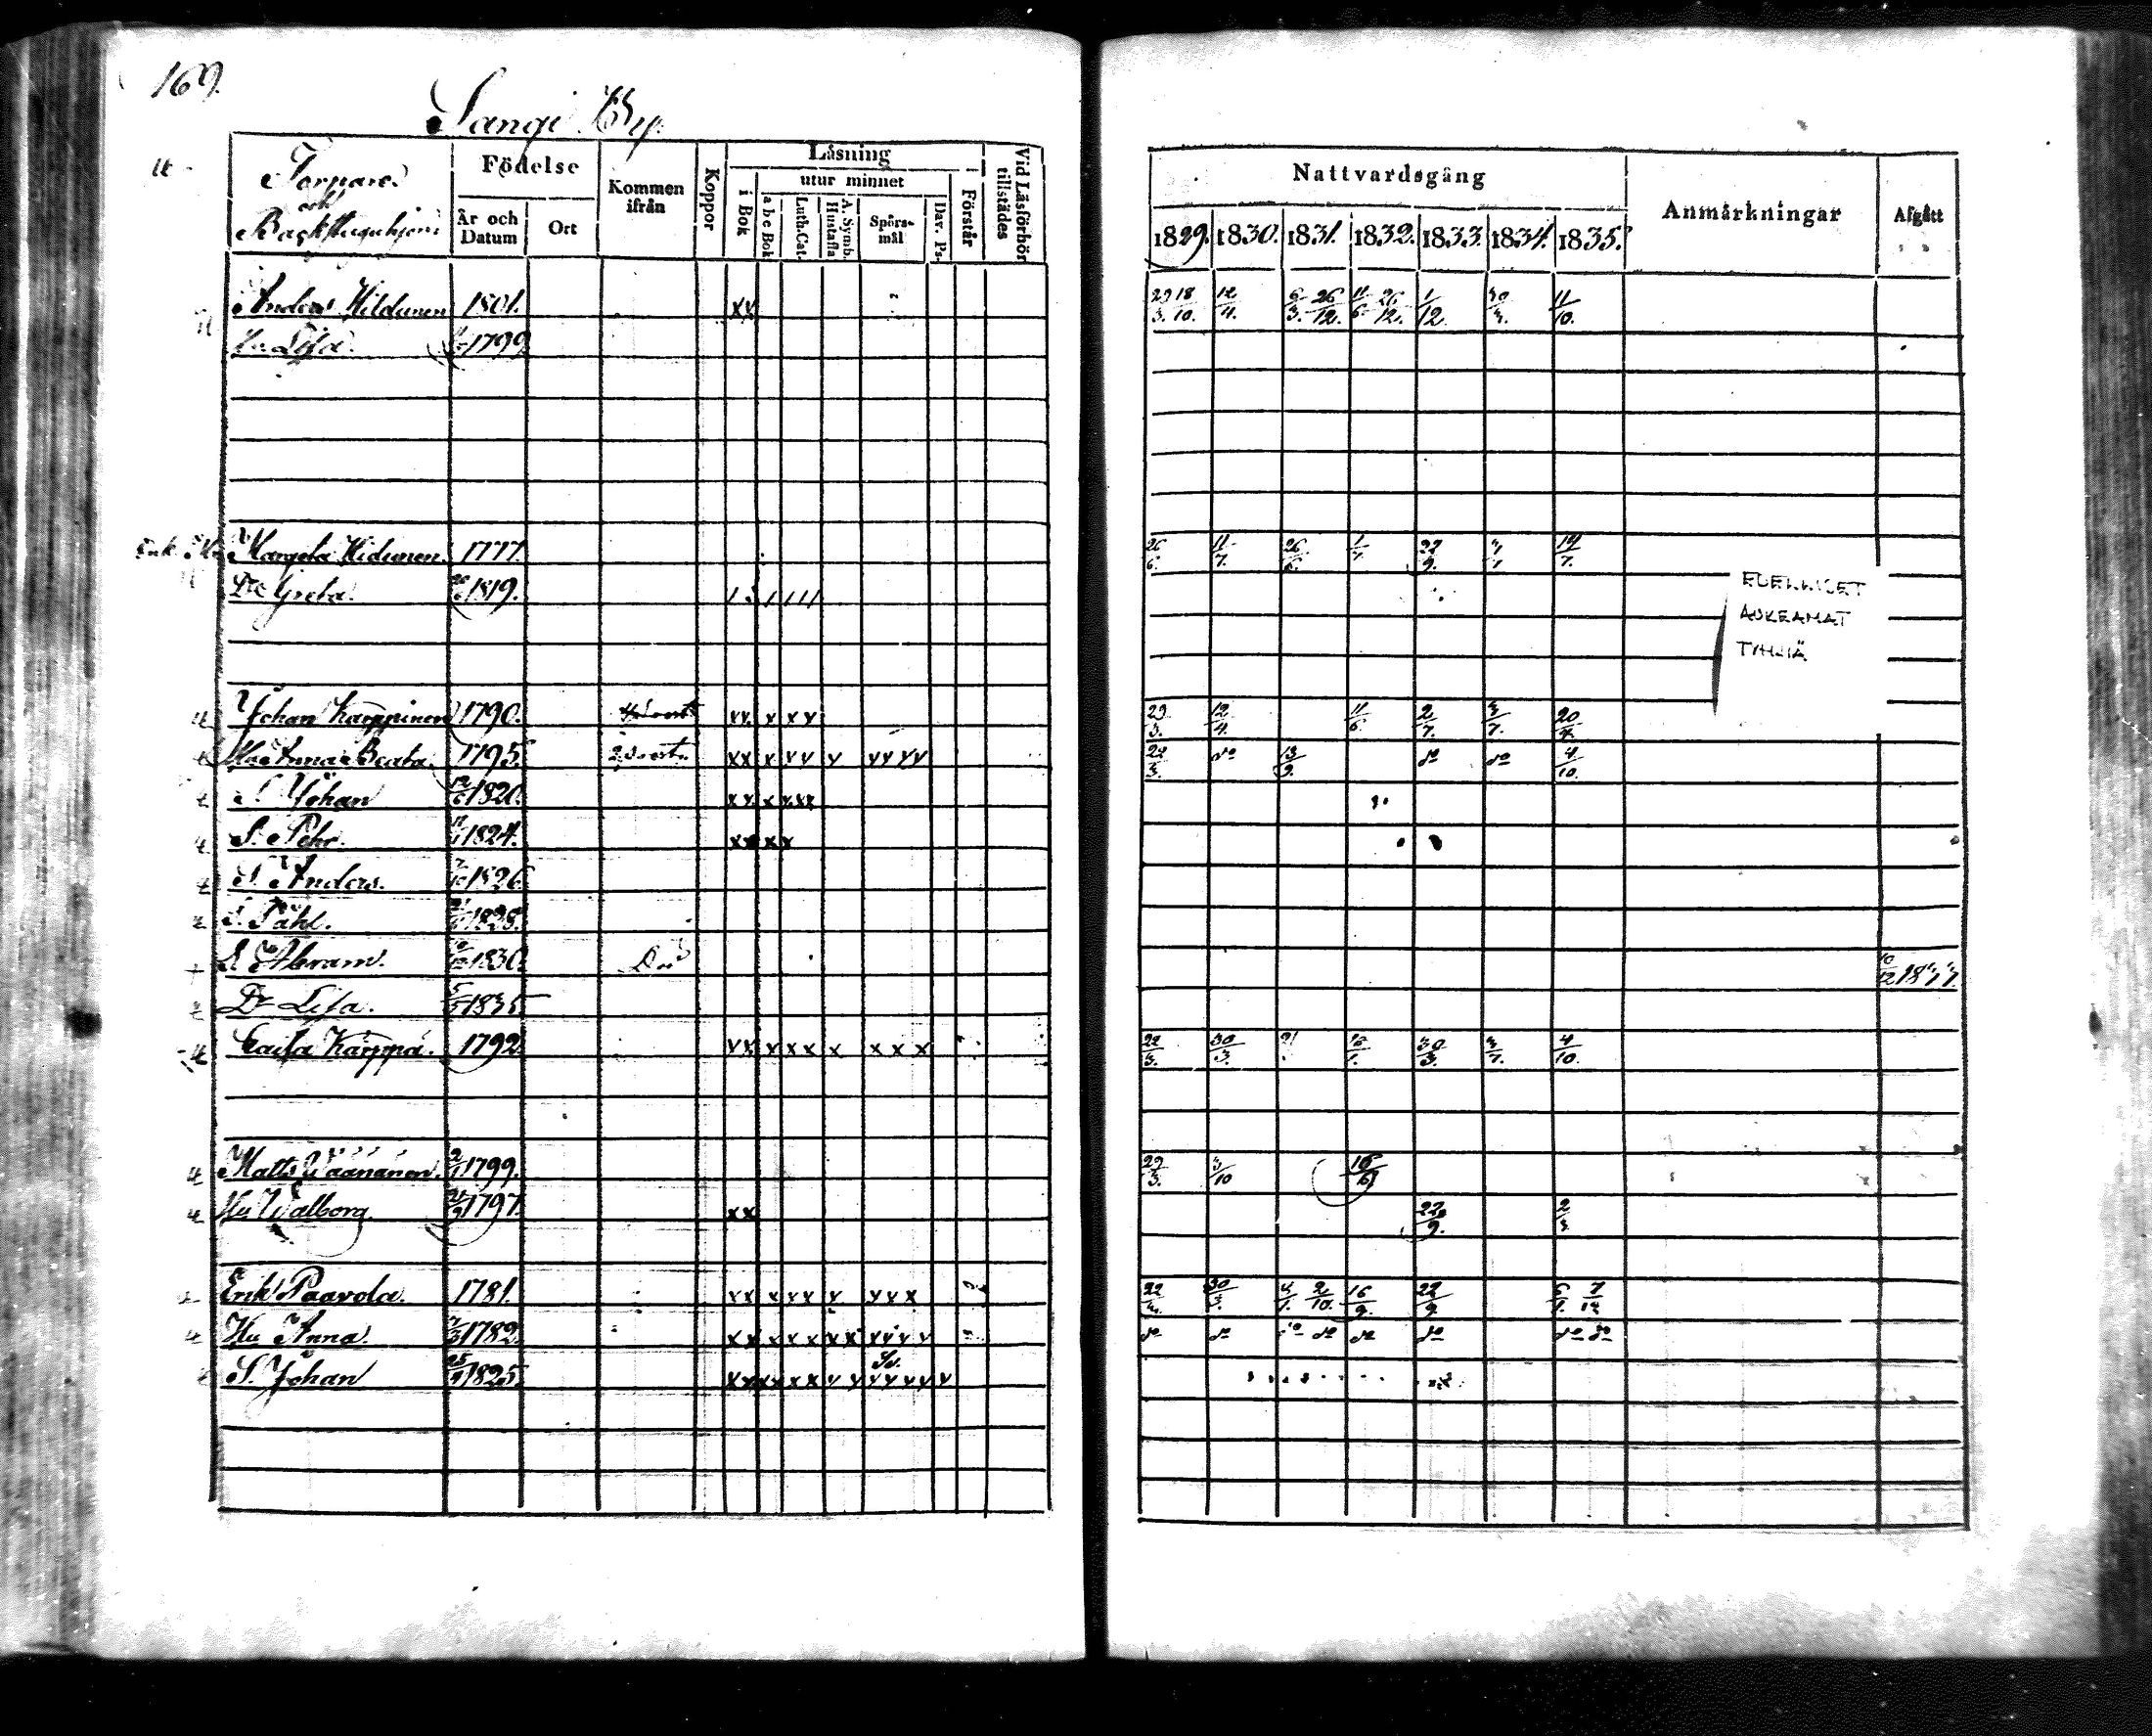 169.
Sangi By.
Torpare
och
Backstuguhjon
Födelse
År och Datum
Ort
Kommen ifrån
Koppor
Läsning
i Bok
utur minnet
a b c Bok
Luth. Cat.
A. Symb. Hustafla
Spörsmål
Dav. Ps.
Förstår
Vid Läsförhör tillstädes
Nattvardsgång
1829. 1830. 1831. 1832. 1833. 1834. 1835.
Anmärkningar
Afgått
Anders Hildunen 1801. xx 29/3. 18/10. 12/4. 6/3. 26/12. 11/6 26/12. 1/12. 11/10.
Hu Lisa. 1799
Enk. Margeta Hidunen. 1777. 26/6. 11/7. 26/6. 22/9.
Dr Greta. 1819.
EDELLISET
AUKEAMAT
TYHJIÄ
Johan Karppinen 1790. xx x xx 29/3. 12/4. 11/6. 2/7. 3/7. 20/4.
Hu Anna Beata. 1795. xx x xx x xxxx do 13/9. do do 4/10.
S. Johan 12/6 1820. xx x xxx
S. Pehr. 1824. xx xx
S. Anders. 1826.
S. Påhl.
S. Abram. 1830. 10/12 1833.
Dr Lisa. 1835
Caisa Karppa. 1792. xx x xx x xxx 22/3. 30/3. 30/3. 3/7. 4/10.
Matts Väänänen. 2/1 1799. 29/3. 3/10 16/6
Hu Walborg. 1797. xx 22/9.
Erik Paavola. 1781. xx x xx x xxx 30/3. 2/10. 16/9. 22/9. 7/12
Hu Anna. 1782. xx x xx xx xxxx do do do do do do do do
S. Johan 1825.